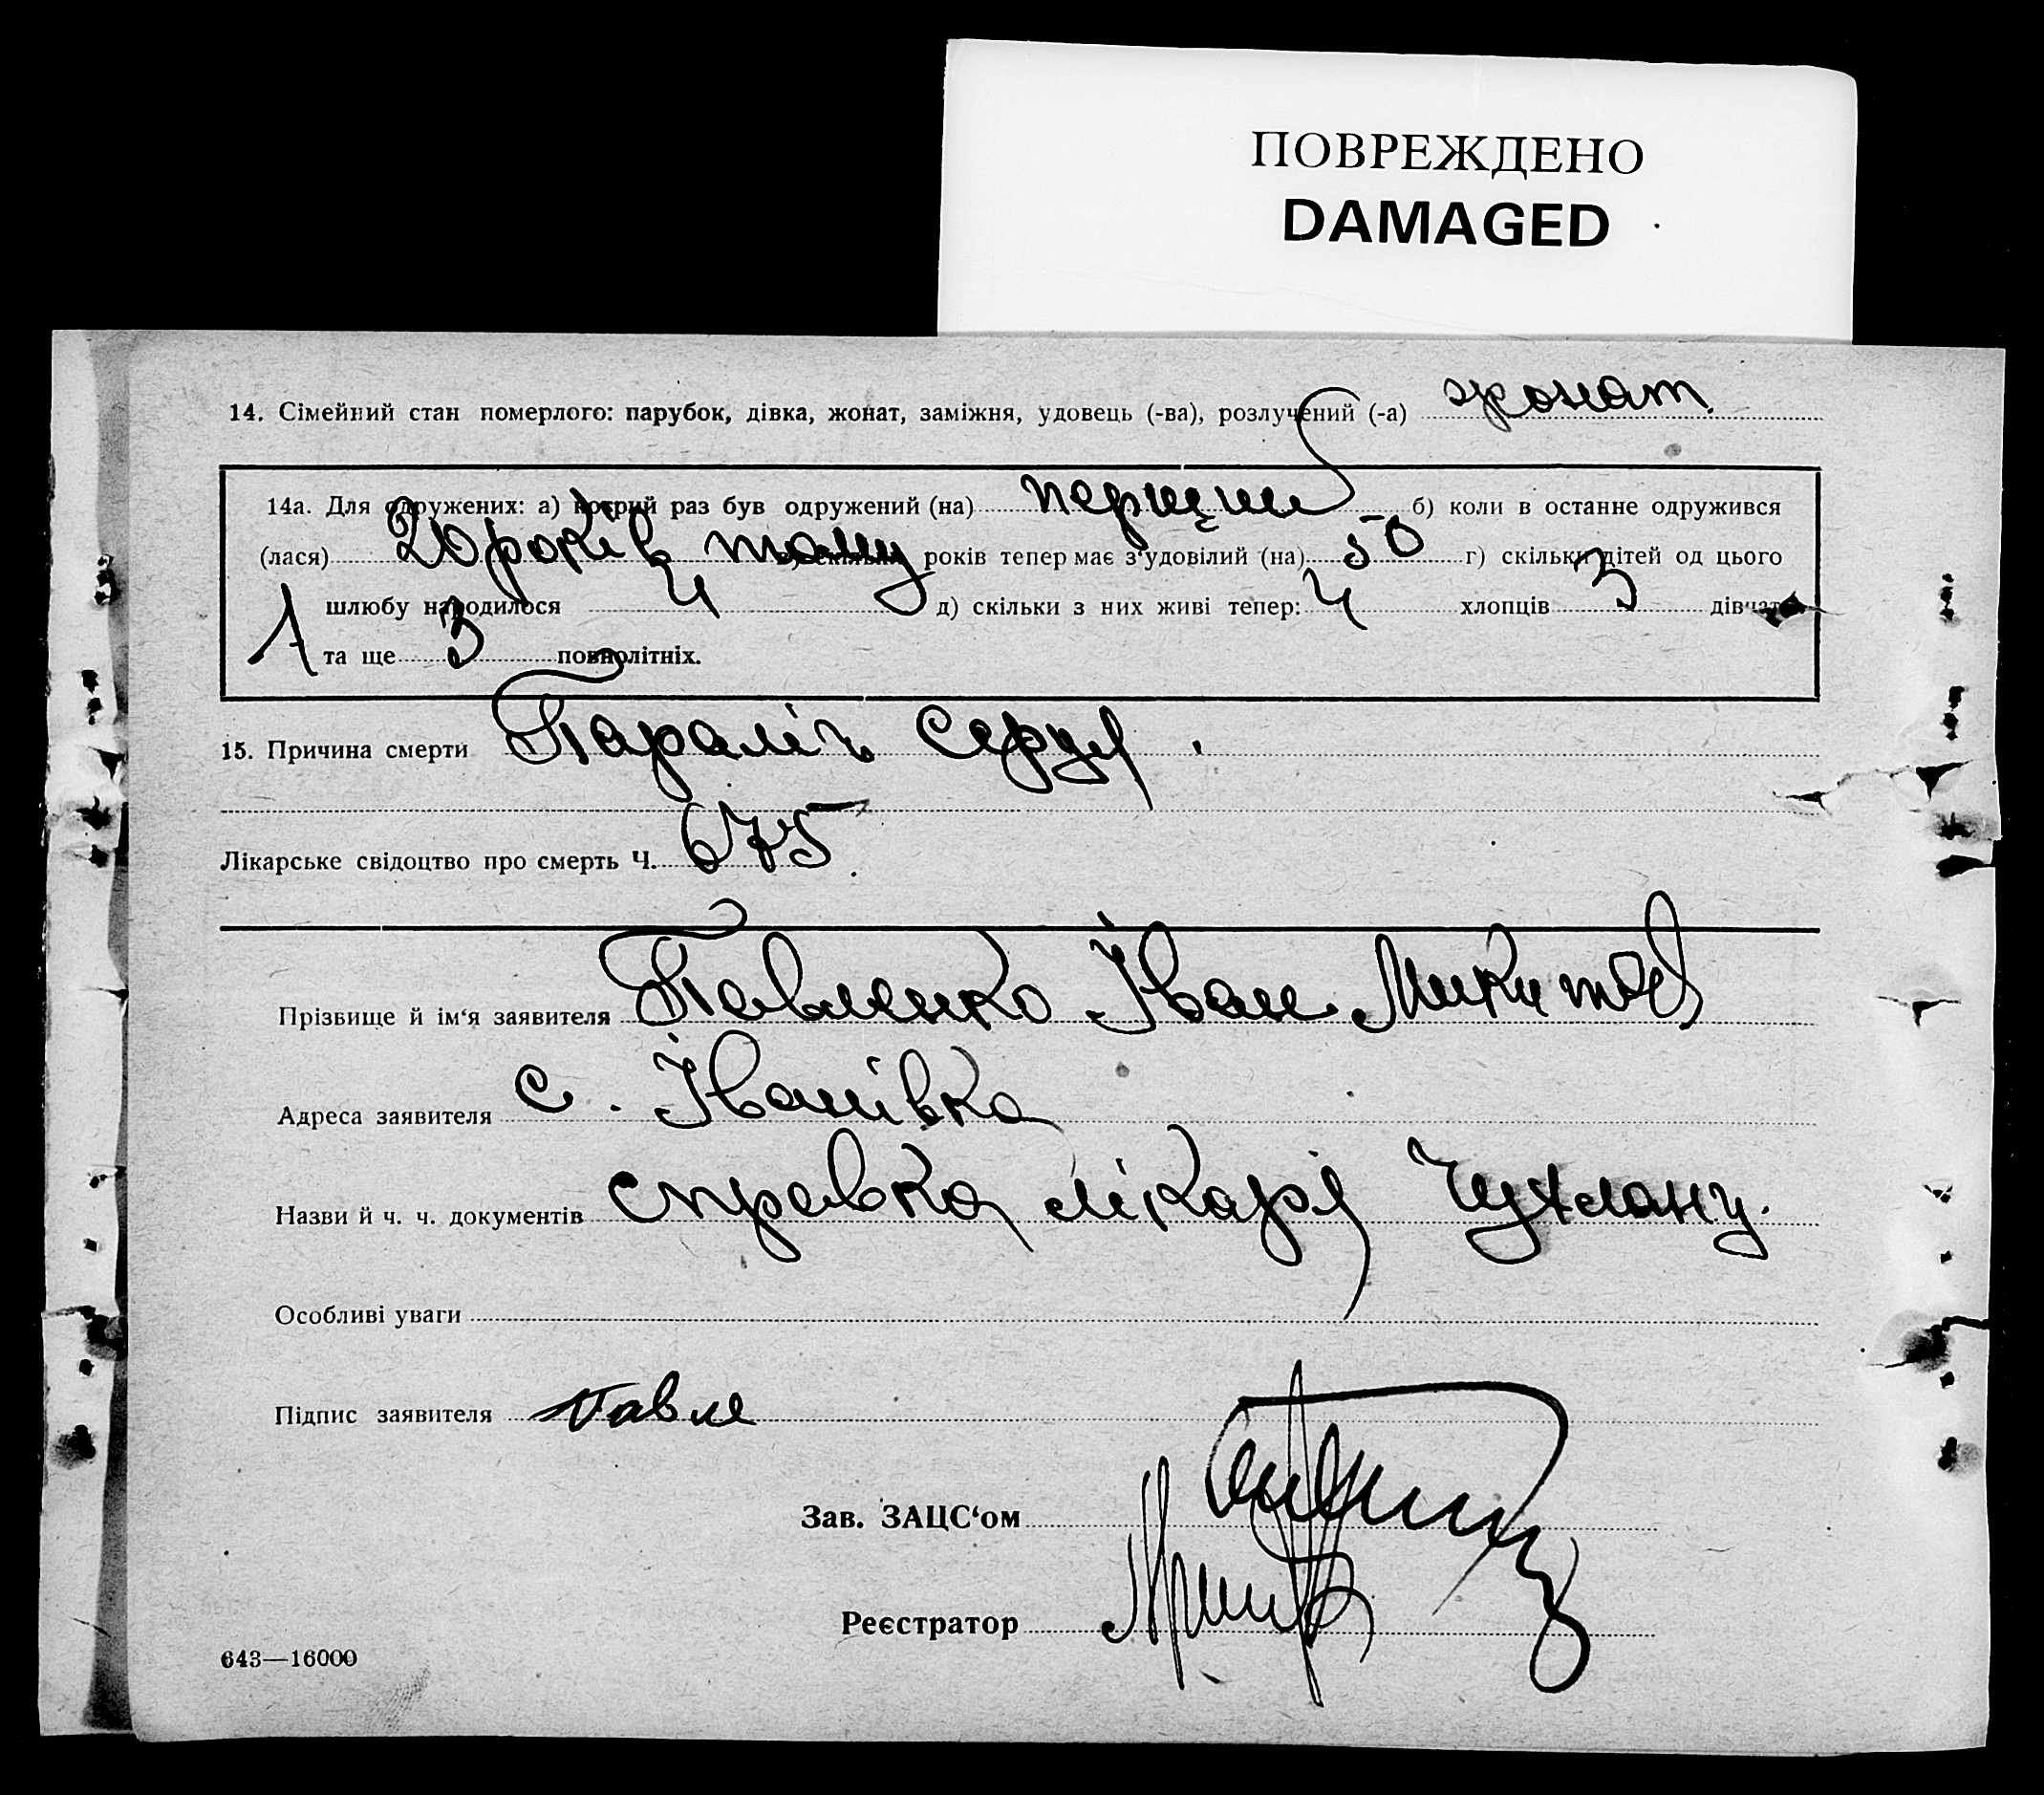 ПОВРЕЖДЕНО
DAMAGED
14. Сімейний стан померлого: парубок, дівка, жонат, заміжня, удовець (-ва), розлучений (-а) жонат
14а. Для одружених: а) котрий раз був одружений (на) перший б) коли в останне одружився
(лася) 20 років тому в) скільки років тепер має з'удовілий (на) 50 г) скільки дітей од цього
шлюбу народилося 4 д) скільки з них живі тепер: 4 хлопців 3 дівчат
1 та ще 3 повнолітніх.
15. Причина смерти Параліч серця.
Лікарське свідоцтво про смерть Ч. 675
Прізвище й ім‘я заявителя Павленко Іван Микитов
Адреса заявителя с. Іванівка
Назви й ч. ч. документів справка лікаря Чухлану.
Особливі уваги
Підпис заявителя Павле
Зав. ЗАЦС‘ом
Реєстратор
643—16000